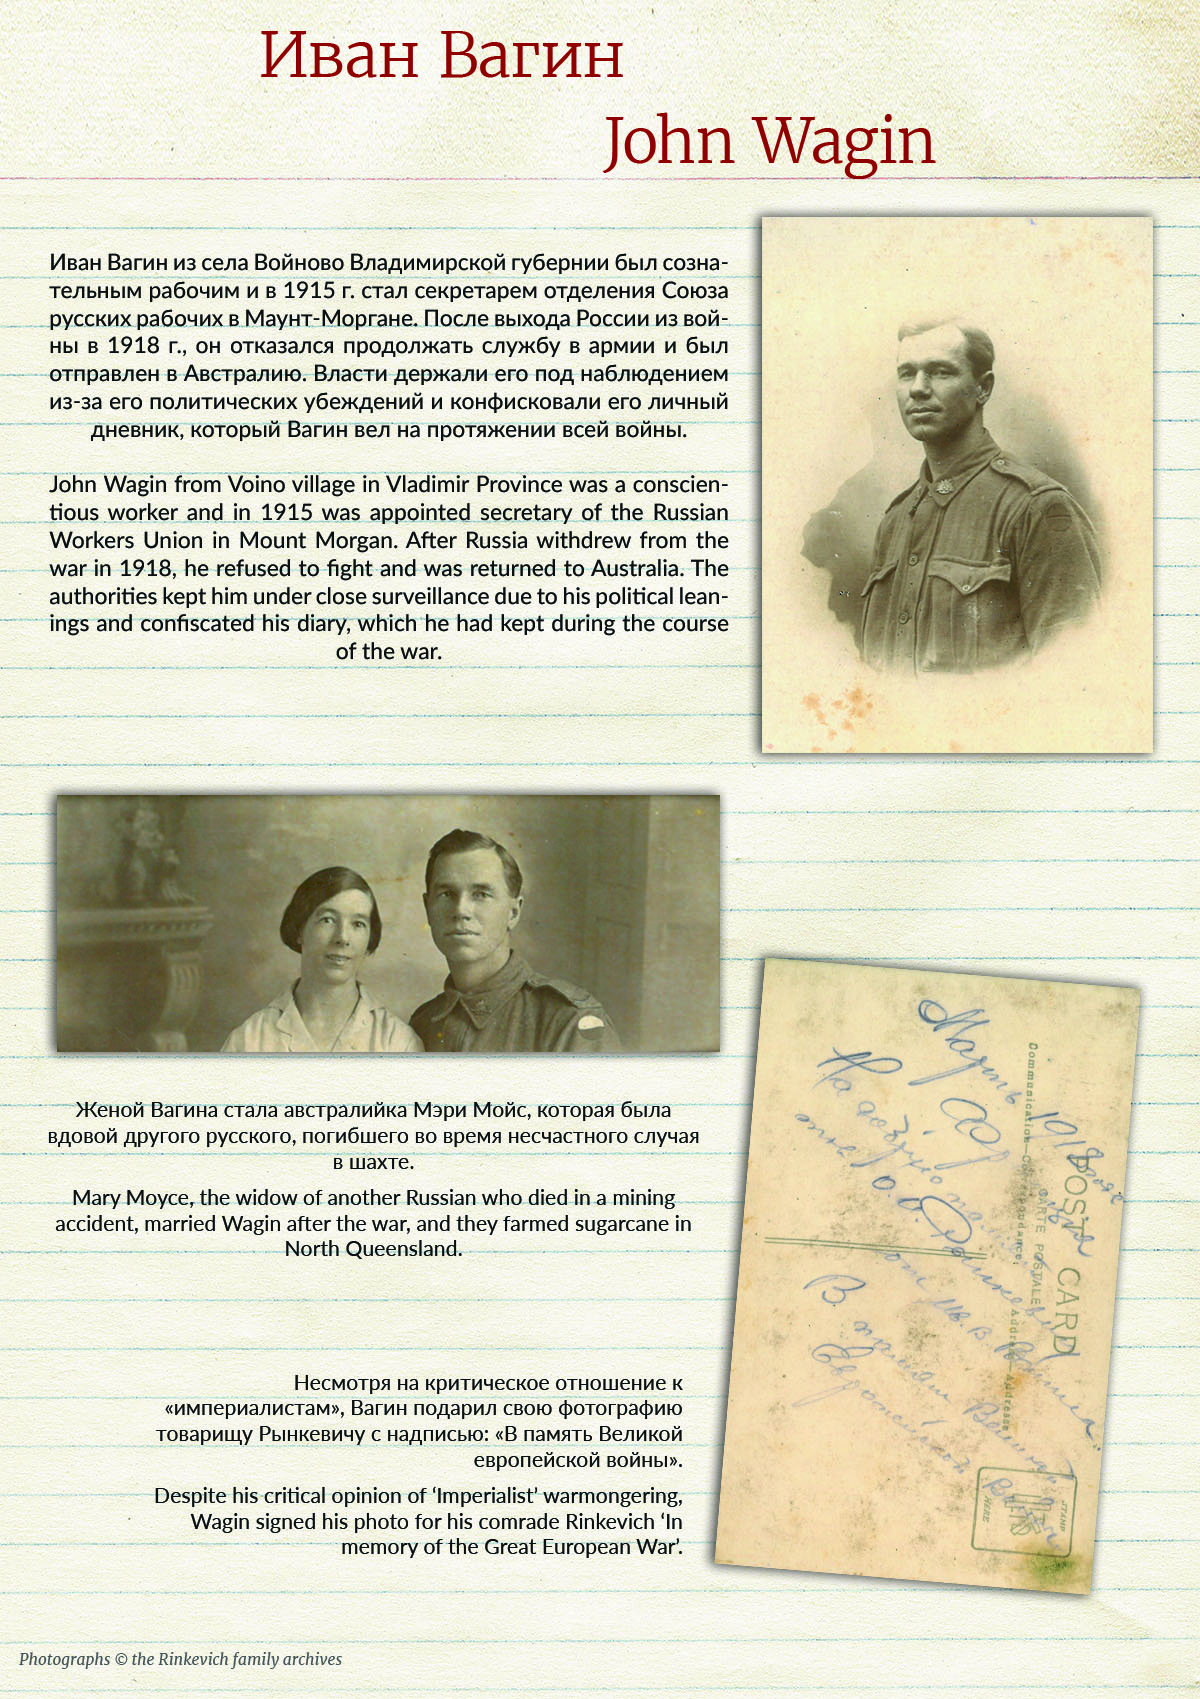 Иван Вагин
John Wagin
Иван Вагин из села Войново Владимирской губернии был созна-
тельным рабочим и в 1915 г. стал секретарем отделения Союза
русских рабочих в Маунт-Моргане. После выхода России из вой-
ны в 1918 г., он отказался продолжать службу в армии и был
отправлен в Австралию. Власти держали его под наблюдением
из-за его политических убеждений и конфисковали его личный
дневник, который Вагин вел на протяжении всей войны.
John Wagin from Voino village in Vladimir Province was a conscien-
tious worker and in 1915 was appointed secretary of the Russian
Workers Union in Mount Morgan. After Russia withdrew from the
war in 1918, he refused to fight and was returned to Australia. The
authorities kept him under close surveillance due to his political lean-
ings and confiscated his diary, which he had kept during the course
of the war.
Женой Вагина стала австралийка Мэри Мойс, которая была
вдовой другого русского, погибшего во время несчастного случая
в шахте.
Mary Moyce, the widow of another Russian who died in a mining
accident, married Wagin after the war, and they farmed sugarcane in
North Queensland.
Несмотря на критическое отношение к
«империалистам», Вагин подарил свою фотографию
товарищу Рынкевичу с надписью: «В память Великой
европейской войны».
Despite his critical opinion of ‘Imperialist’ warmongering,
Wagin signed his photo for his comrade Rinkevich ‘In
memory of the Great European War’.
POST CARD
CARTE POSTALE
Communication—Correspondance.
Address—Adresse
Мартъ 1918
На добрую
от Ив. В. Вагина
В память Великой
Европейской Войны
STAMP
HERE
Photographs © the Rinkevich family archives